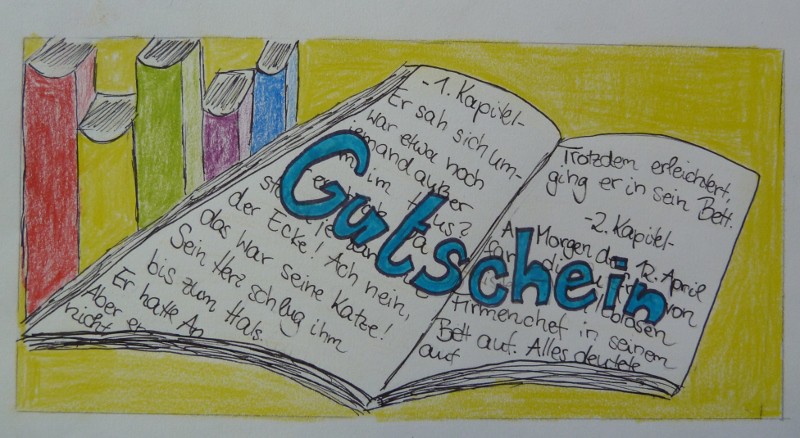 -1. Kapitel-
Er sah sich um-
war etwa noch
jemand außer
im Haus?
der Ecke! Ach nein,
das war seine Katze!
Sein Herz schlug ihm
bis zum Hals.
Er hatte An
Aber er
nicht
Trotzdem erleichtert,
ging er in sein Bett.
-2. Kapitel-
Morgen des 12. April
von
Firmenchef in seinem
Bett auf. Alles deutete
auf
Gutschein